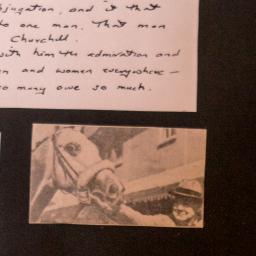 jugation, and if that
to one man. That man
Churchill.
with him the admiration and
en and women everywhere —
so many owe so much.